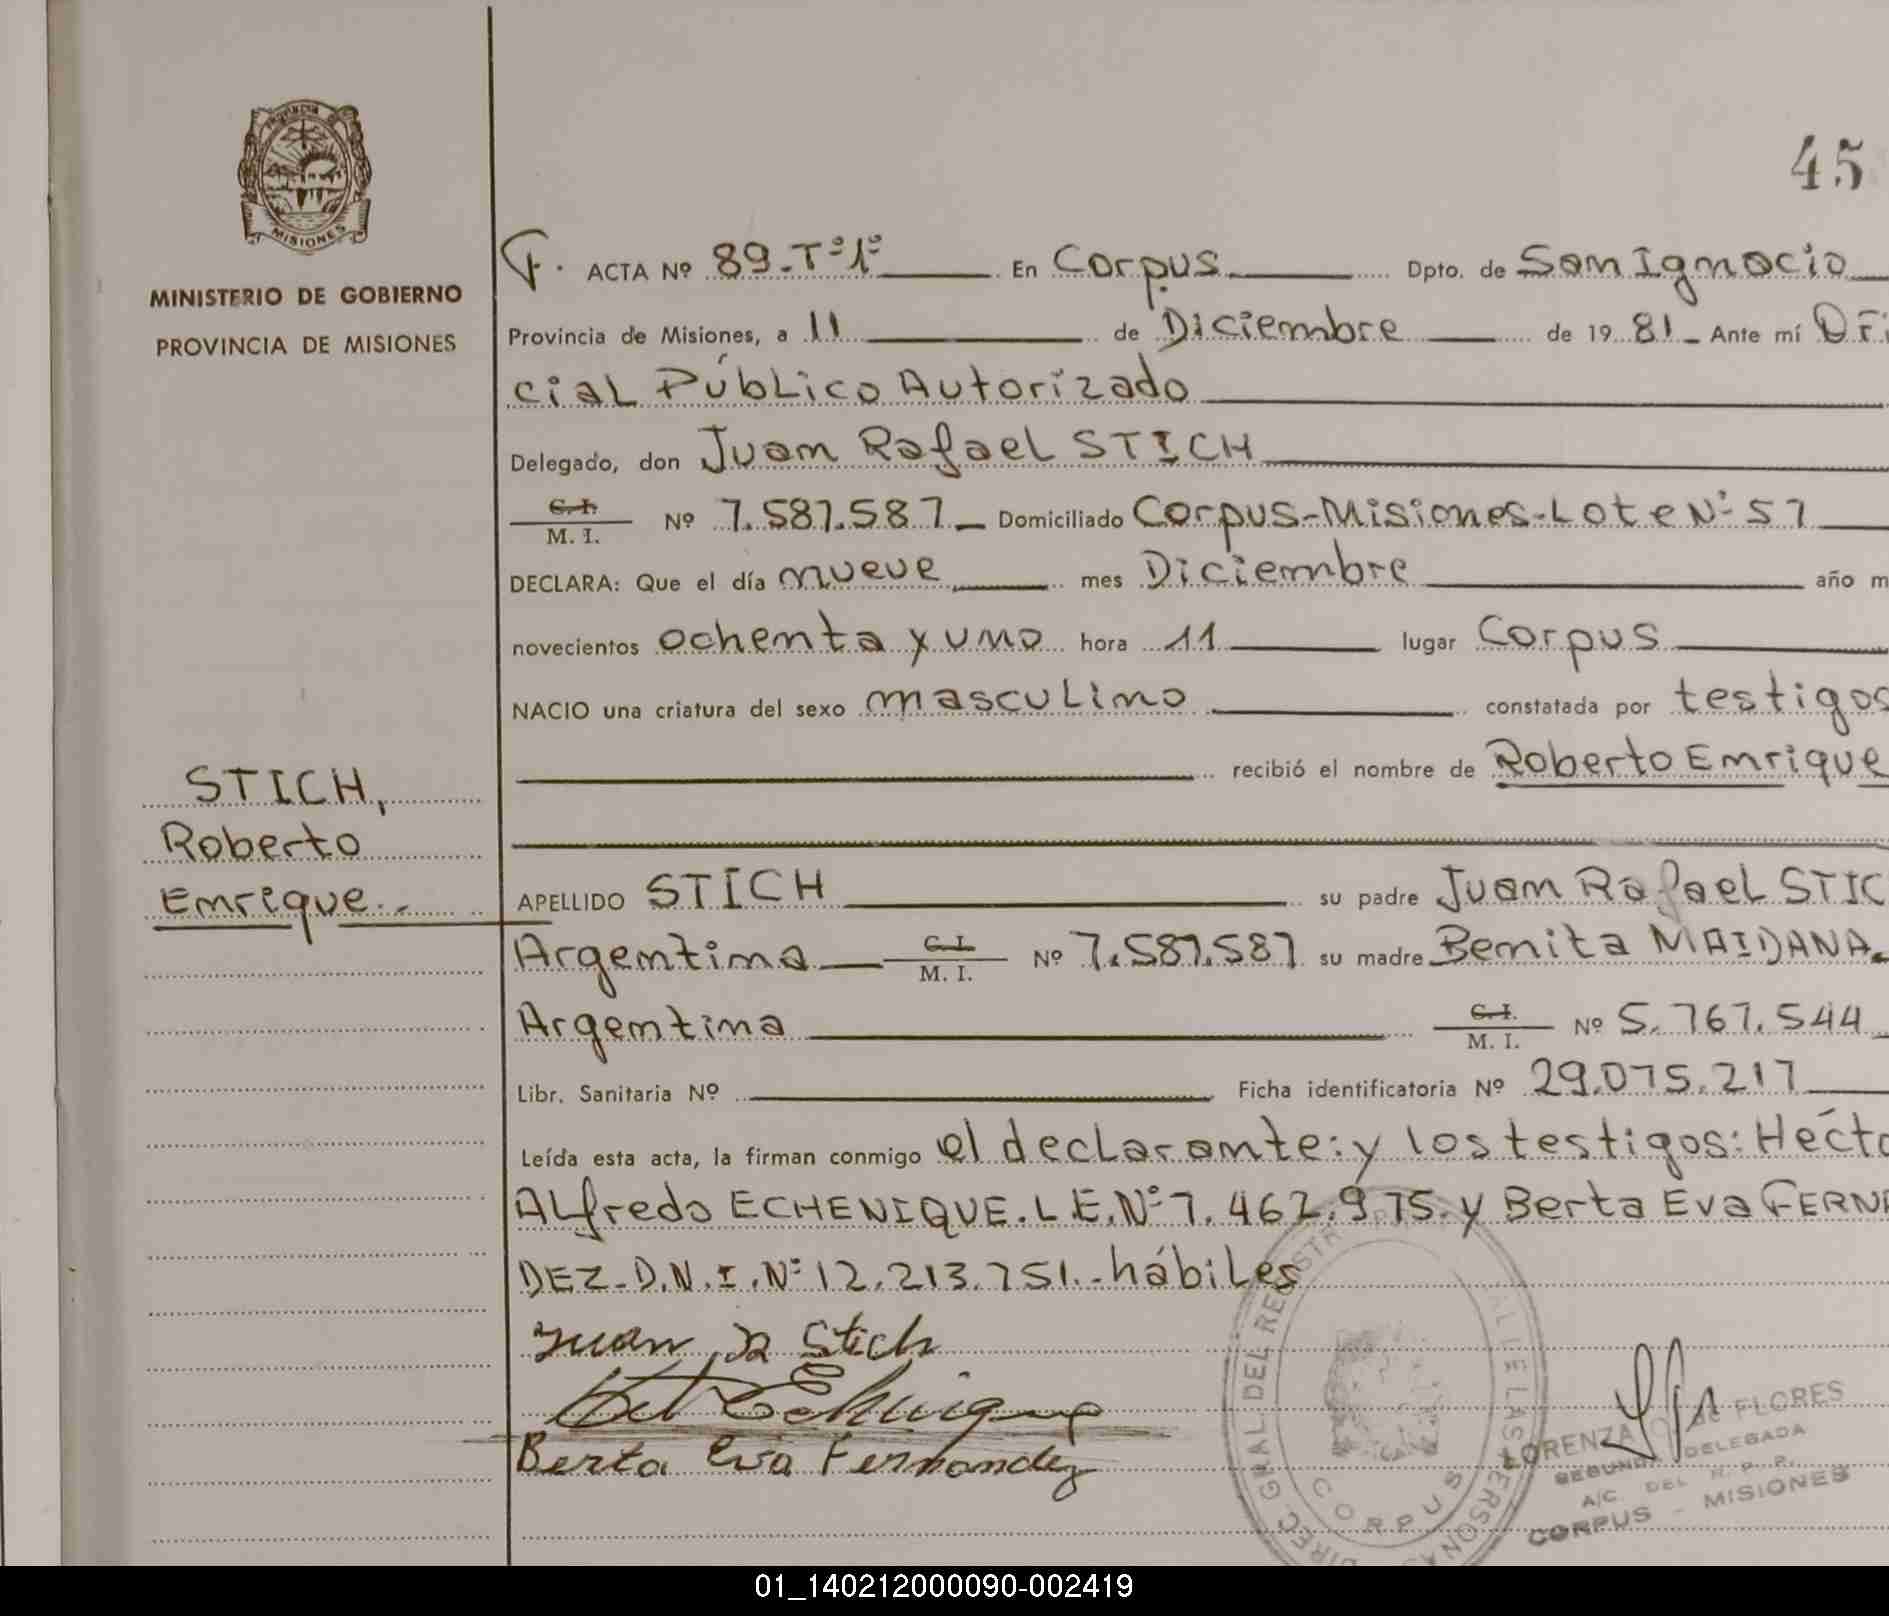 PROVINCIA DE
MISIONES
MINISTERIO DE GOBIERNO
PROVINCIA DE MISIONES
45
F. ACTA Nº 89-Tº1º En Corpus Dpto. de San Ignacio
Provincia de Misiones, a 11 de Diciembre de 1981 - Ante mí Ofi
cial Público Autorizado
Delegado, don Juan Rafael STICH
C. I.
M. I. Nº 7.587.587 - Domiciliado Corpus-Misiones-Lote Nº 57
DECLARA: Que el día nueve mes Diciembre año m
novecientos ochenta y uno hora 11 lugar Corpus
NACIO una criatura del sexo masculino constatada por testigos
recibió el nombre de Roberto Enrique
STICH,
Roberto
Enrique.-
APELLIDO STICH su padre Juan Rafael STIC
Argentina C. I. M. I. Nº 7.587.587 su madre Benita MAIDANA
Argentina C. I. M. I. Nº 5.767.544
Libr. Sanitaria Nº Ficha identificatoria Nº 29.075.217
Leída esta acta, la firman conmigo el declarante: y los testigos: Hécto
Alfredo ECHENIQUE. L.E. Nº 7.462.975. y Berta Eva FERNA
DEZ-D.N.I. Nº 12.213.751.-hábiles
Juan R Stich
Berta Eva Fernandez
DIREC. GRAL DEL REGISTR DE LAS PERSONAS
CORPUS
LORENZA DE FLORES
SEGUNDA DELEGADA
A/C DEL R. P. P.
CORPUS - MISIONES
01_140212000090-002419